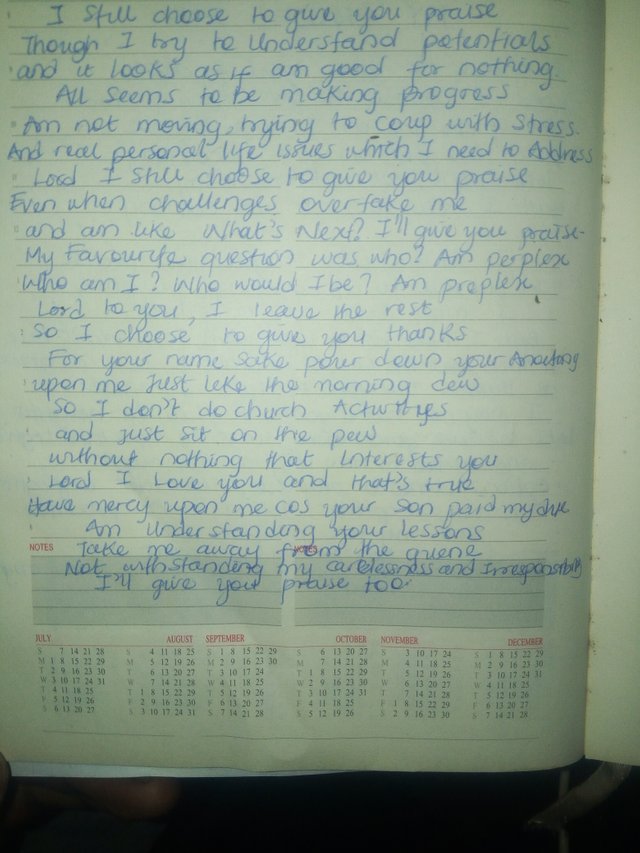 I still choose to give you praise
Though I try to Understand potentials
and it looks as if am good for nothing.
All seems to be making progress
Am not moving, trying to coup with stress.
And real personal life issues which I need to Address
Lord I still choose to give you praise
Even when challenges overtake me
and am like What's Next? I'll give you praise-
My Favourite question was who? Am perplex
Who am I? Who would I be? Am preplex
Lord to you, I leave the rest
So I choose to give you thanks
For your name sake pour down your Anointing
upon me Just like the morning dew
So I don't do church Activities
and just sit on the pew
without nothing that Interests you
Lord I Love you and that's true
Have mercy upon me cos your Son paid my due
Am Understanding your lessons
NOTES Take me away from the queue NOTES
Not withstanding my carelessness and Irresponsibility
I'll give you praise too.
JULY AUGUST SEPTEMBER OCTOBER NOVEMBER DECEMBER
S 7 14 21 28 S 4 11 18 25 S 1 8 15 22 29 S 6 13 20 27 S 3 10 17 24 S 1 8 15 22 29
M 1 8 15 22 29 M 5 12 19 26 M 2 9 16 23 30 M 7 14 21 28 M 4 11 18 25 M 2 9 16 23 30
T 2 9 16 23 30 T 6 13 20 27 T 3 10 17 24 T 1 8 15 22 29 T 5 12 19 26 T 3 10 17 24 31
W 3 10 17 24 31 W 7 14 21 28 W 4 11 18 25 W 2 9 16 23 30 W 6 13 20 27 W 4 11 18 25
T 4 11 18 25 T 1 8 15 22 29 T 5 12 19 26 T 3 10 17 24 31 T 7 14 21 28 T 5 12 19 26
F 5 12 19 26 F 2 9 16 23 30 F 6 13 20 27 F 4 11 18 25 F 1 8 15 22 29 F 6 13 20 27
S 6 13 20 27 S 3 10 17 24 31 S 7 14 21 28 S 5 12 19 26 S 2 9 16 23 30 S 7 14 21 28